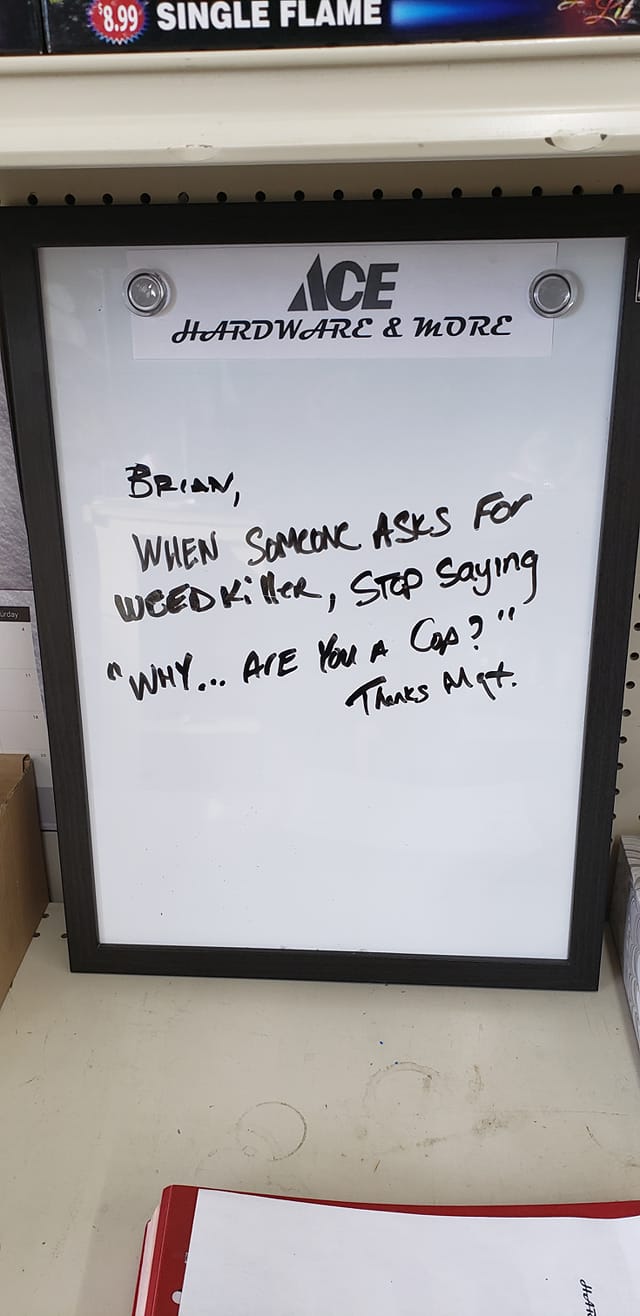 $8.99 SINGLE FLAME
ACE
HARDWARE & MORE
BRIAN,
WHEN SOMEONE ASKS FOR
WEEDKiller, STOP Saying
"WHY... ArE You A Cop?"
Thanks Mgt.